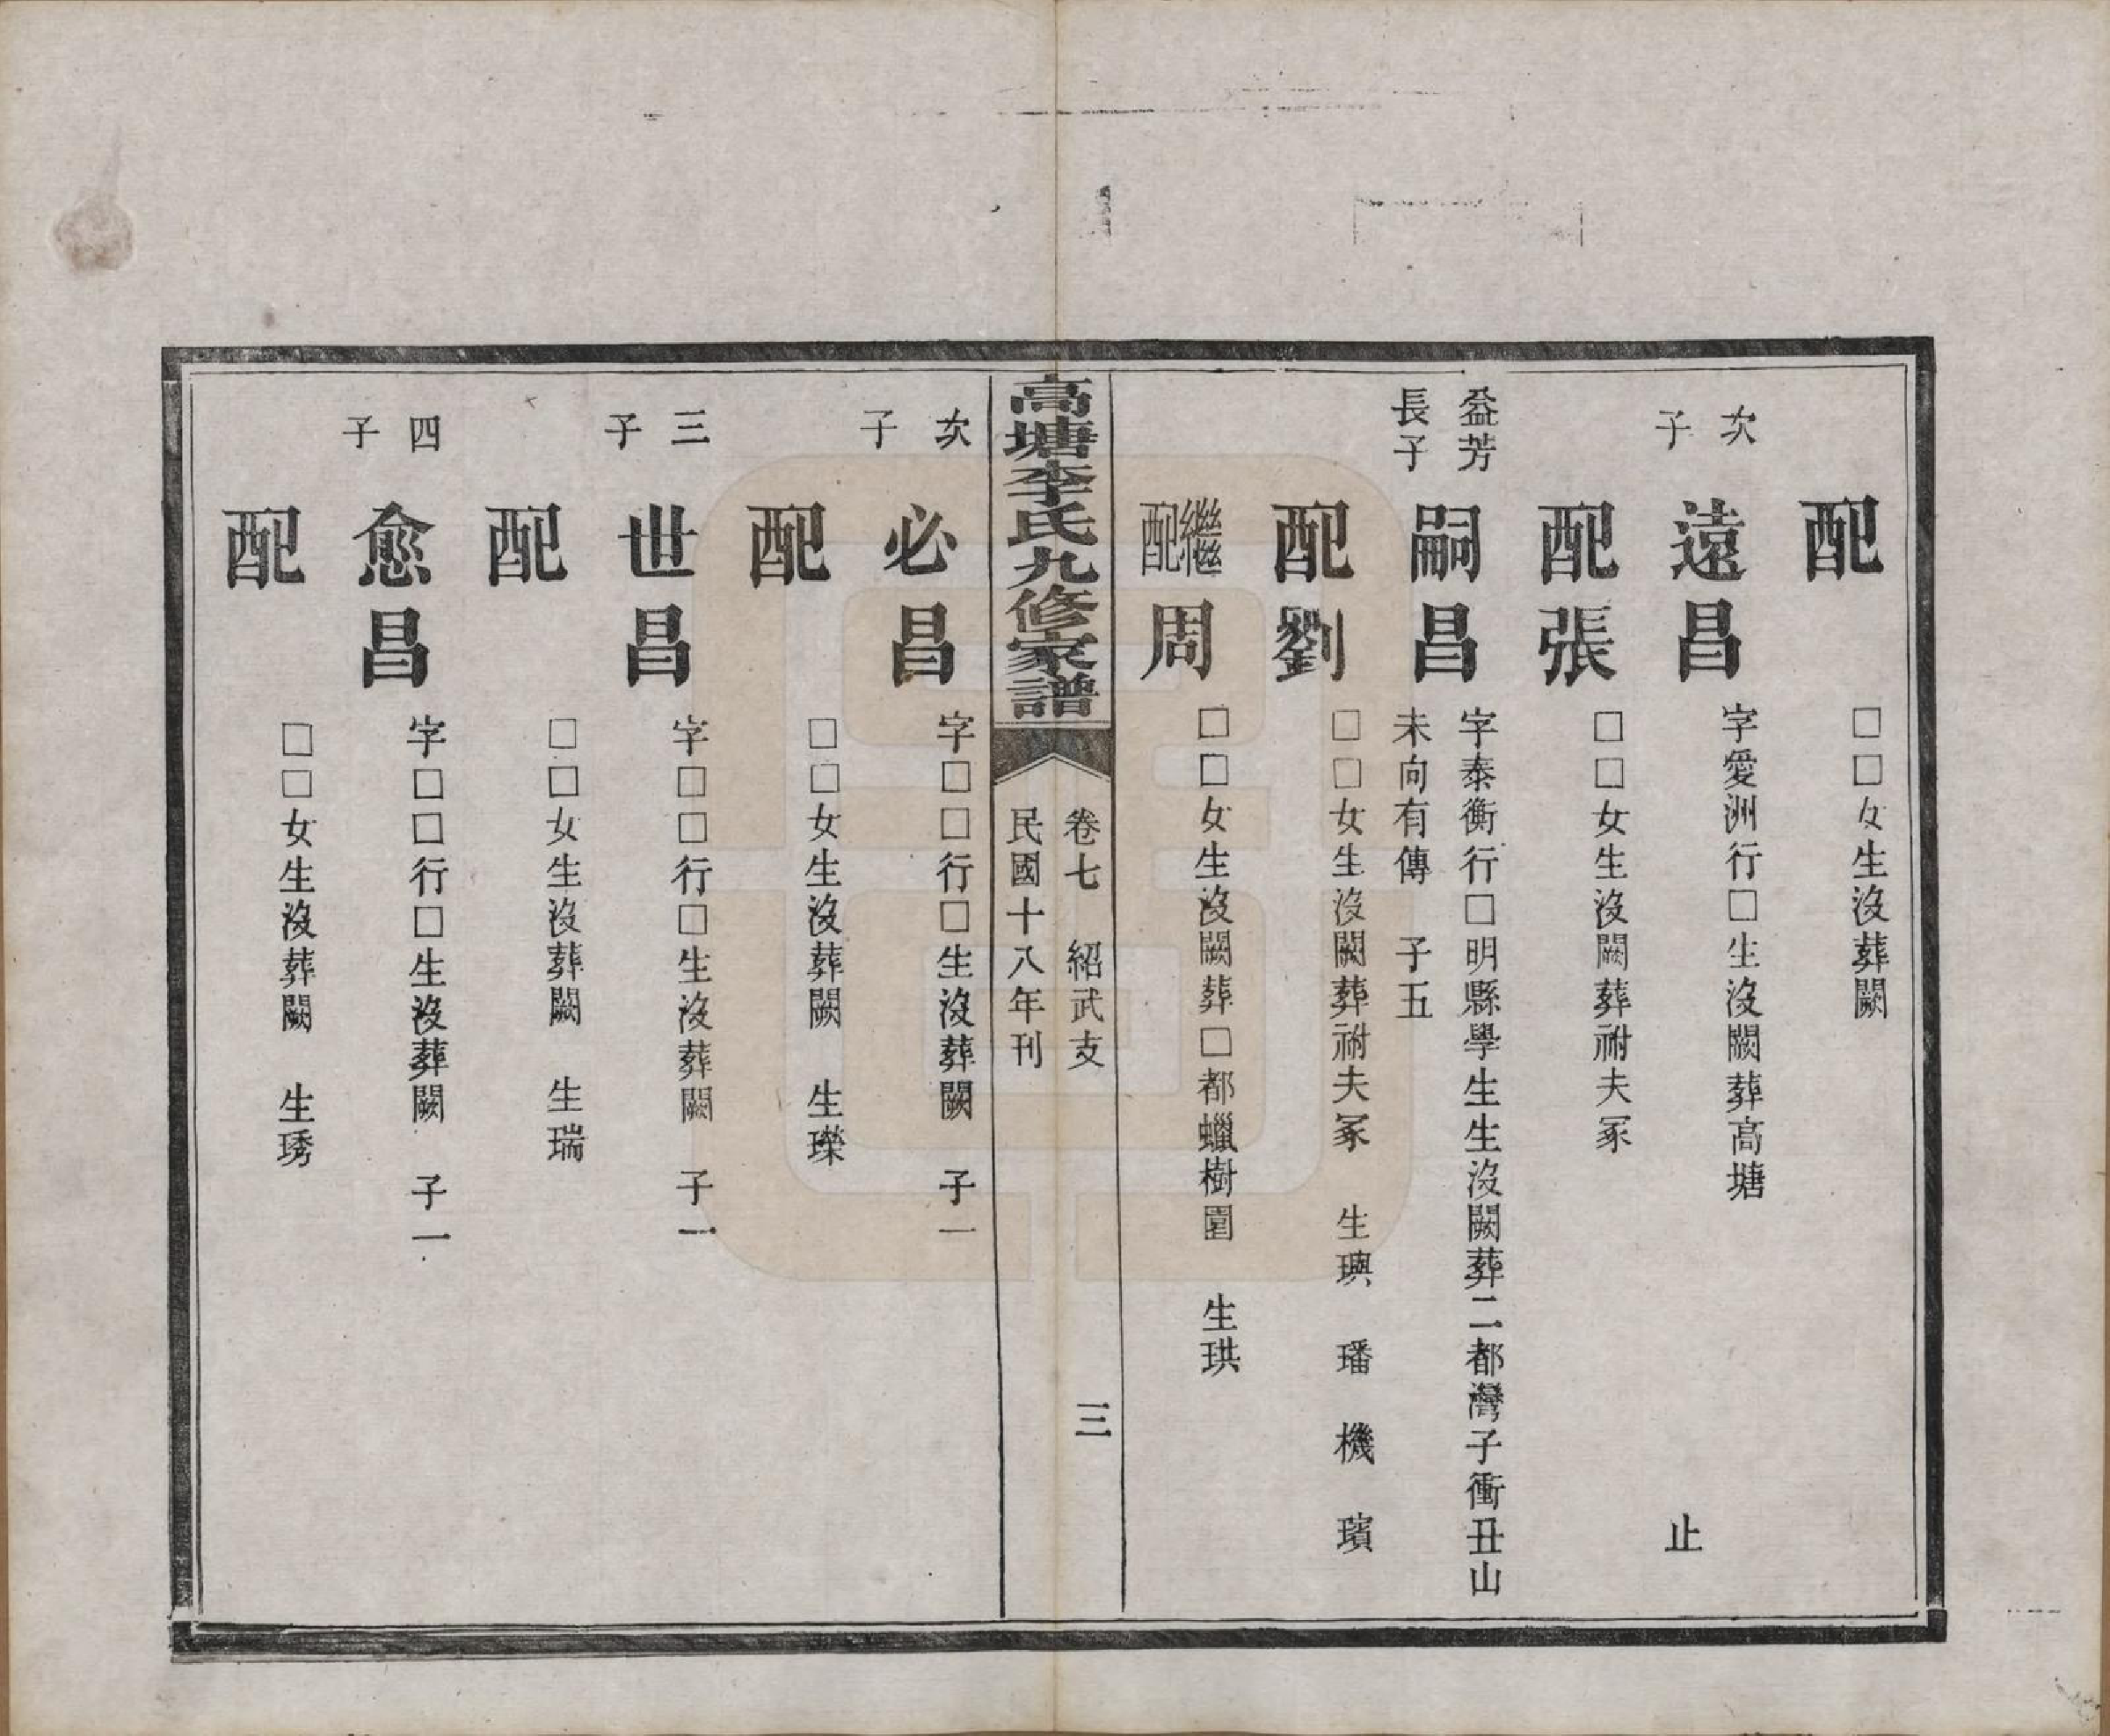 配　□□女生沒葬闕
次子　遠昌　字愛洲行□生沒闕葬高塘
止
配張　□□女生沒闕葬祔夫冢
益芳長子　嗣昌　字泰衡行□明縣學生生沒闕葬二都灣子衝丑山
未向有傳　子五
配劉　□□女生沒闕葬祔夫冢　生璵　璠　機　璸
繼配周　□□女生沒闕葬□都蠟樹園　生珙
高塘李氏九修家譜
卷七　紹武支　三
民國十八年刊
次子　必昌　字□□行□生沒葬闕　子一
配　□□女生沒葬闕　生瓅
三子　世昌　字□□行□生沒葬闕　子一
配　□□女生沒葬闕　生瑞
四子　愈昌　字□□行□生沒葬闕　子一
配　□□女生沒葬闕　生琇